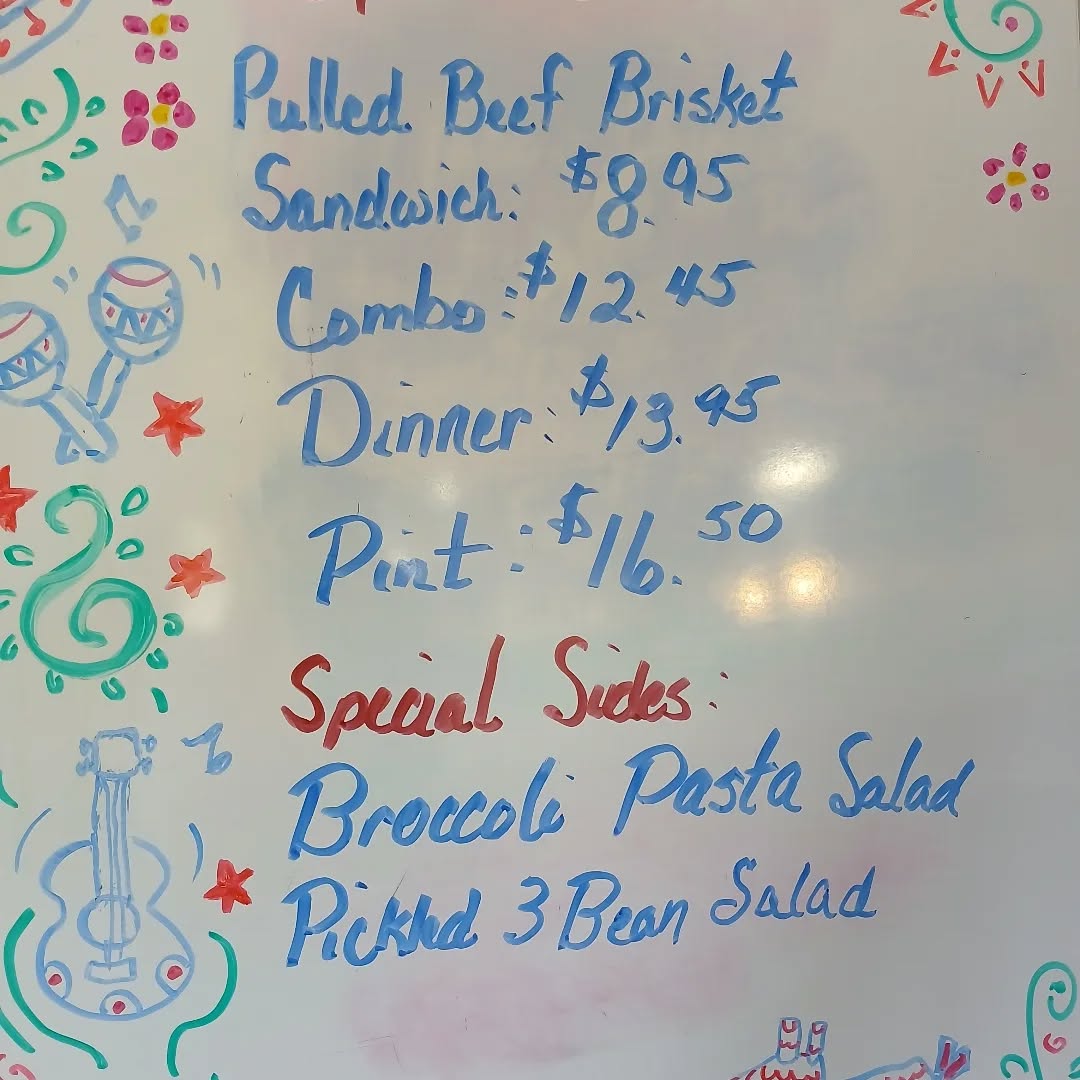 Pulled Beef Brisket
Sandwich: $8.95
Combo: $12.45
Dinner: $13.95
Pint: $16.50
Special Sides:
Broccoli Pasta Salad
Pickled 3 Bean Salad